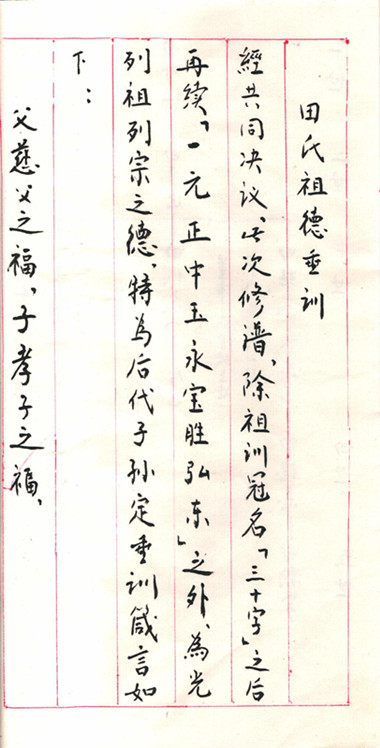 田氏祖德垂训
經共同决议、此次修谱、除祖训冠名「三十字」之后
再续「一元正中玉永宝胜弘东」之外、為光
列祖列宗之德、特為后代子孙定垂训箴言如
下：
父慈父之福，子孝子之福、